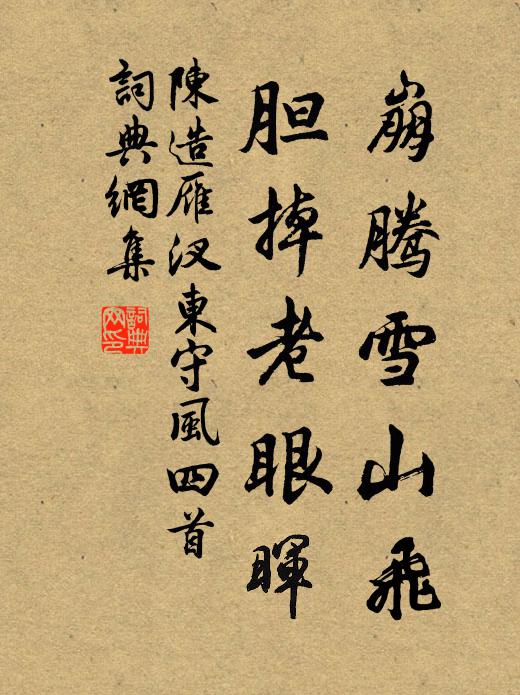 崩騰雪山飛
胆掉老眼暉
陳造雁汊東守風四首
詞典網集
詞典
网印